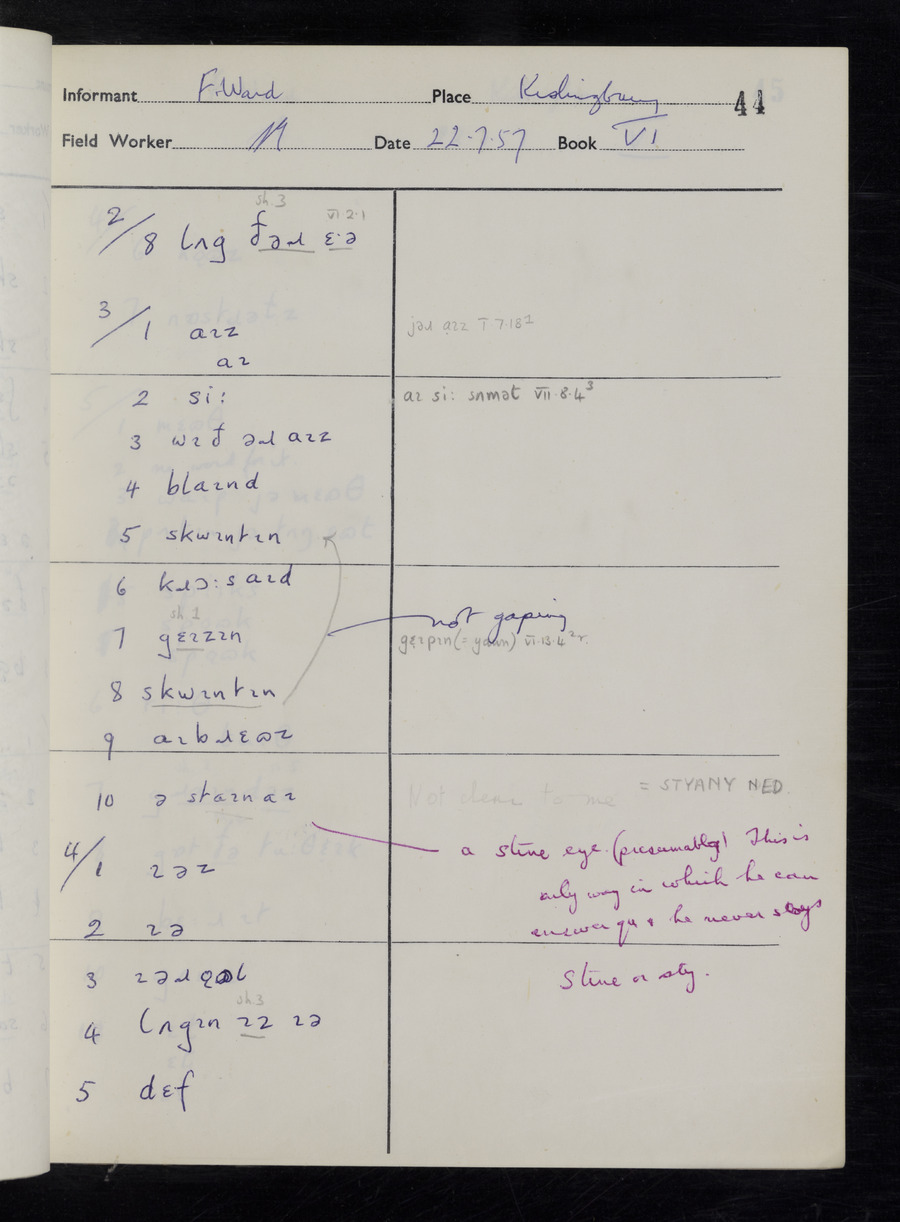 Informant F. Ward Place Kislingbury 44
Field Worker Date 22.7.57 Book VI
sh.3 VI 2.1
2/8 lʌg ðəɹ ɛ·ə
3/1 aɪz jəɹ aɪz I 7.18¹
aɪ
2 si: aɪ si: sʌmət VII.8.4³
3 wɪð əɹ aɪz
4 blaɪnd
5 skwɪntɪn
6 kɹɔ:saɪd
sh 1 not gaping
7 gɛɪzɪn gɛɪpɪn (= yawn) VI.13.4²r.
8 skwɪntɪn
9 aɪbɹɛʊz
10 ə staɪnaɪ Not clear to me = STYANY NED.
a stine eye (presumably) This is
4/1 ɪəz only way in which he can
2 ɪə answer qu & he never says
3 ɪəɹ Stine or sty.
sh.3
4 lʌgɪn ɪz ɪə
5 dɛf